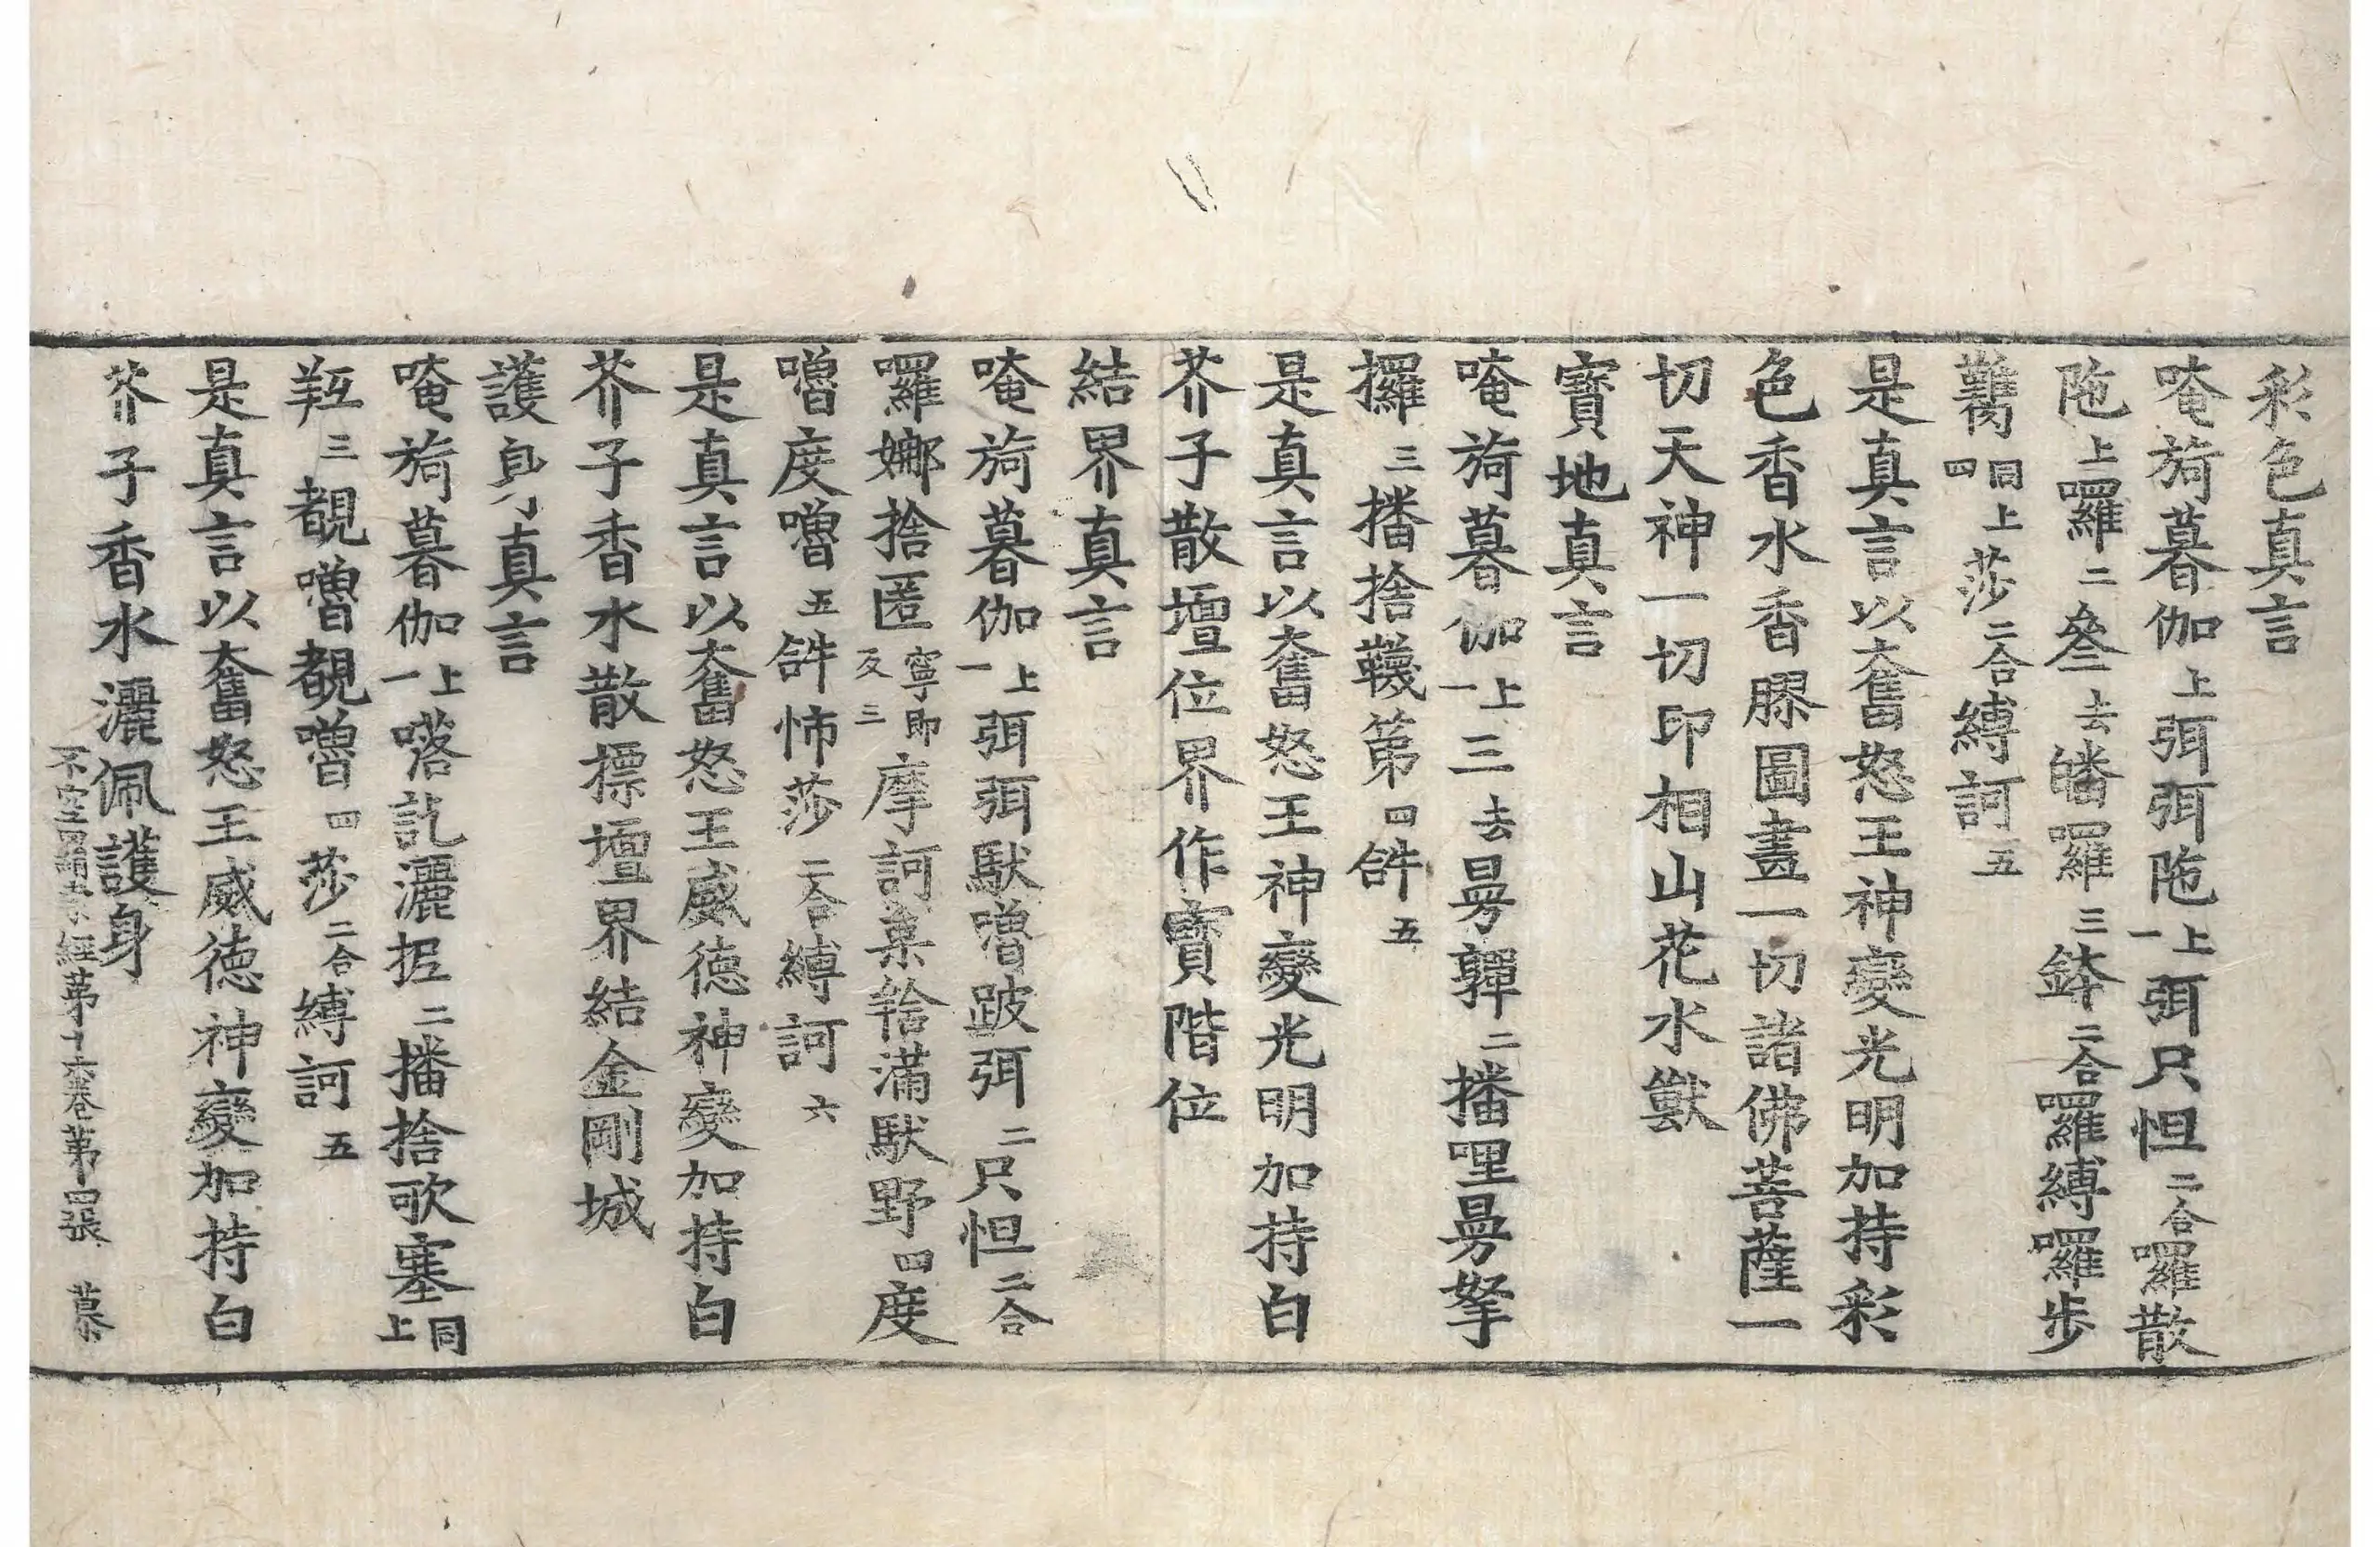 彩色真言
唵旖暮伽上弭弭陁上一弭只怛二合囉散
陁上囉二叄去皤羅三鉢二合囉縛囉步
同上四莎二合縛訶五
是真言以奮怒王神變光明加持彩
色香水香膠圖畫一切諸佛菩薩一
切天神一切印相山花水獸
寶地真言
唵旖暮伽上一三去曼彈二播哩曼拏
攞三播捨韈第四𤙖五
是真言以奮怒王神變光明加持白
芥子散壇位界作寶階位
結界真言
唵旖暮伽上一弭弭馱嚕跛弭二只怛二合
囉娜捨匿寧即反三摩訶菓捨滿馱野四度
嚕度嚕五𤙖怖莎二合縛訶六
是真言以奮怒王威德神變加持白
芥子香水散摽壇界結金剛城
護身真言
唵旖暮伽上一喀訖灑抳二播捨歌塞同上
三覩嚕覩嚕四莎二合縛訶五
是真言以奮怒王威德神變加持白
芥子香水灑佩護身
不空罥索經第十六卷第四張 慕